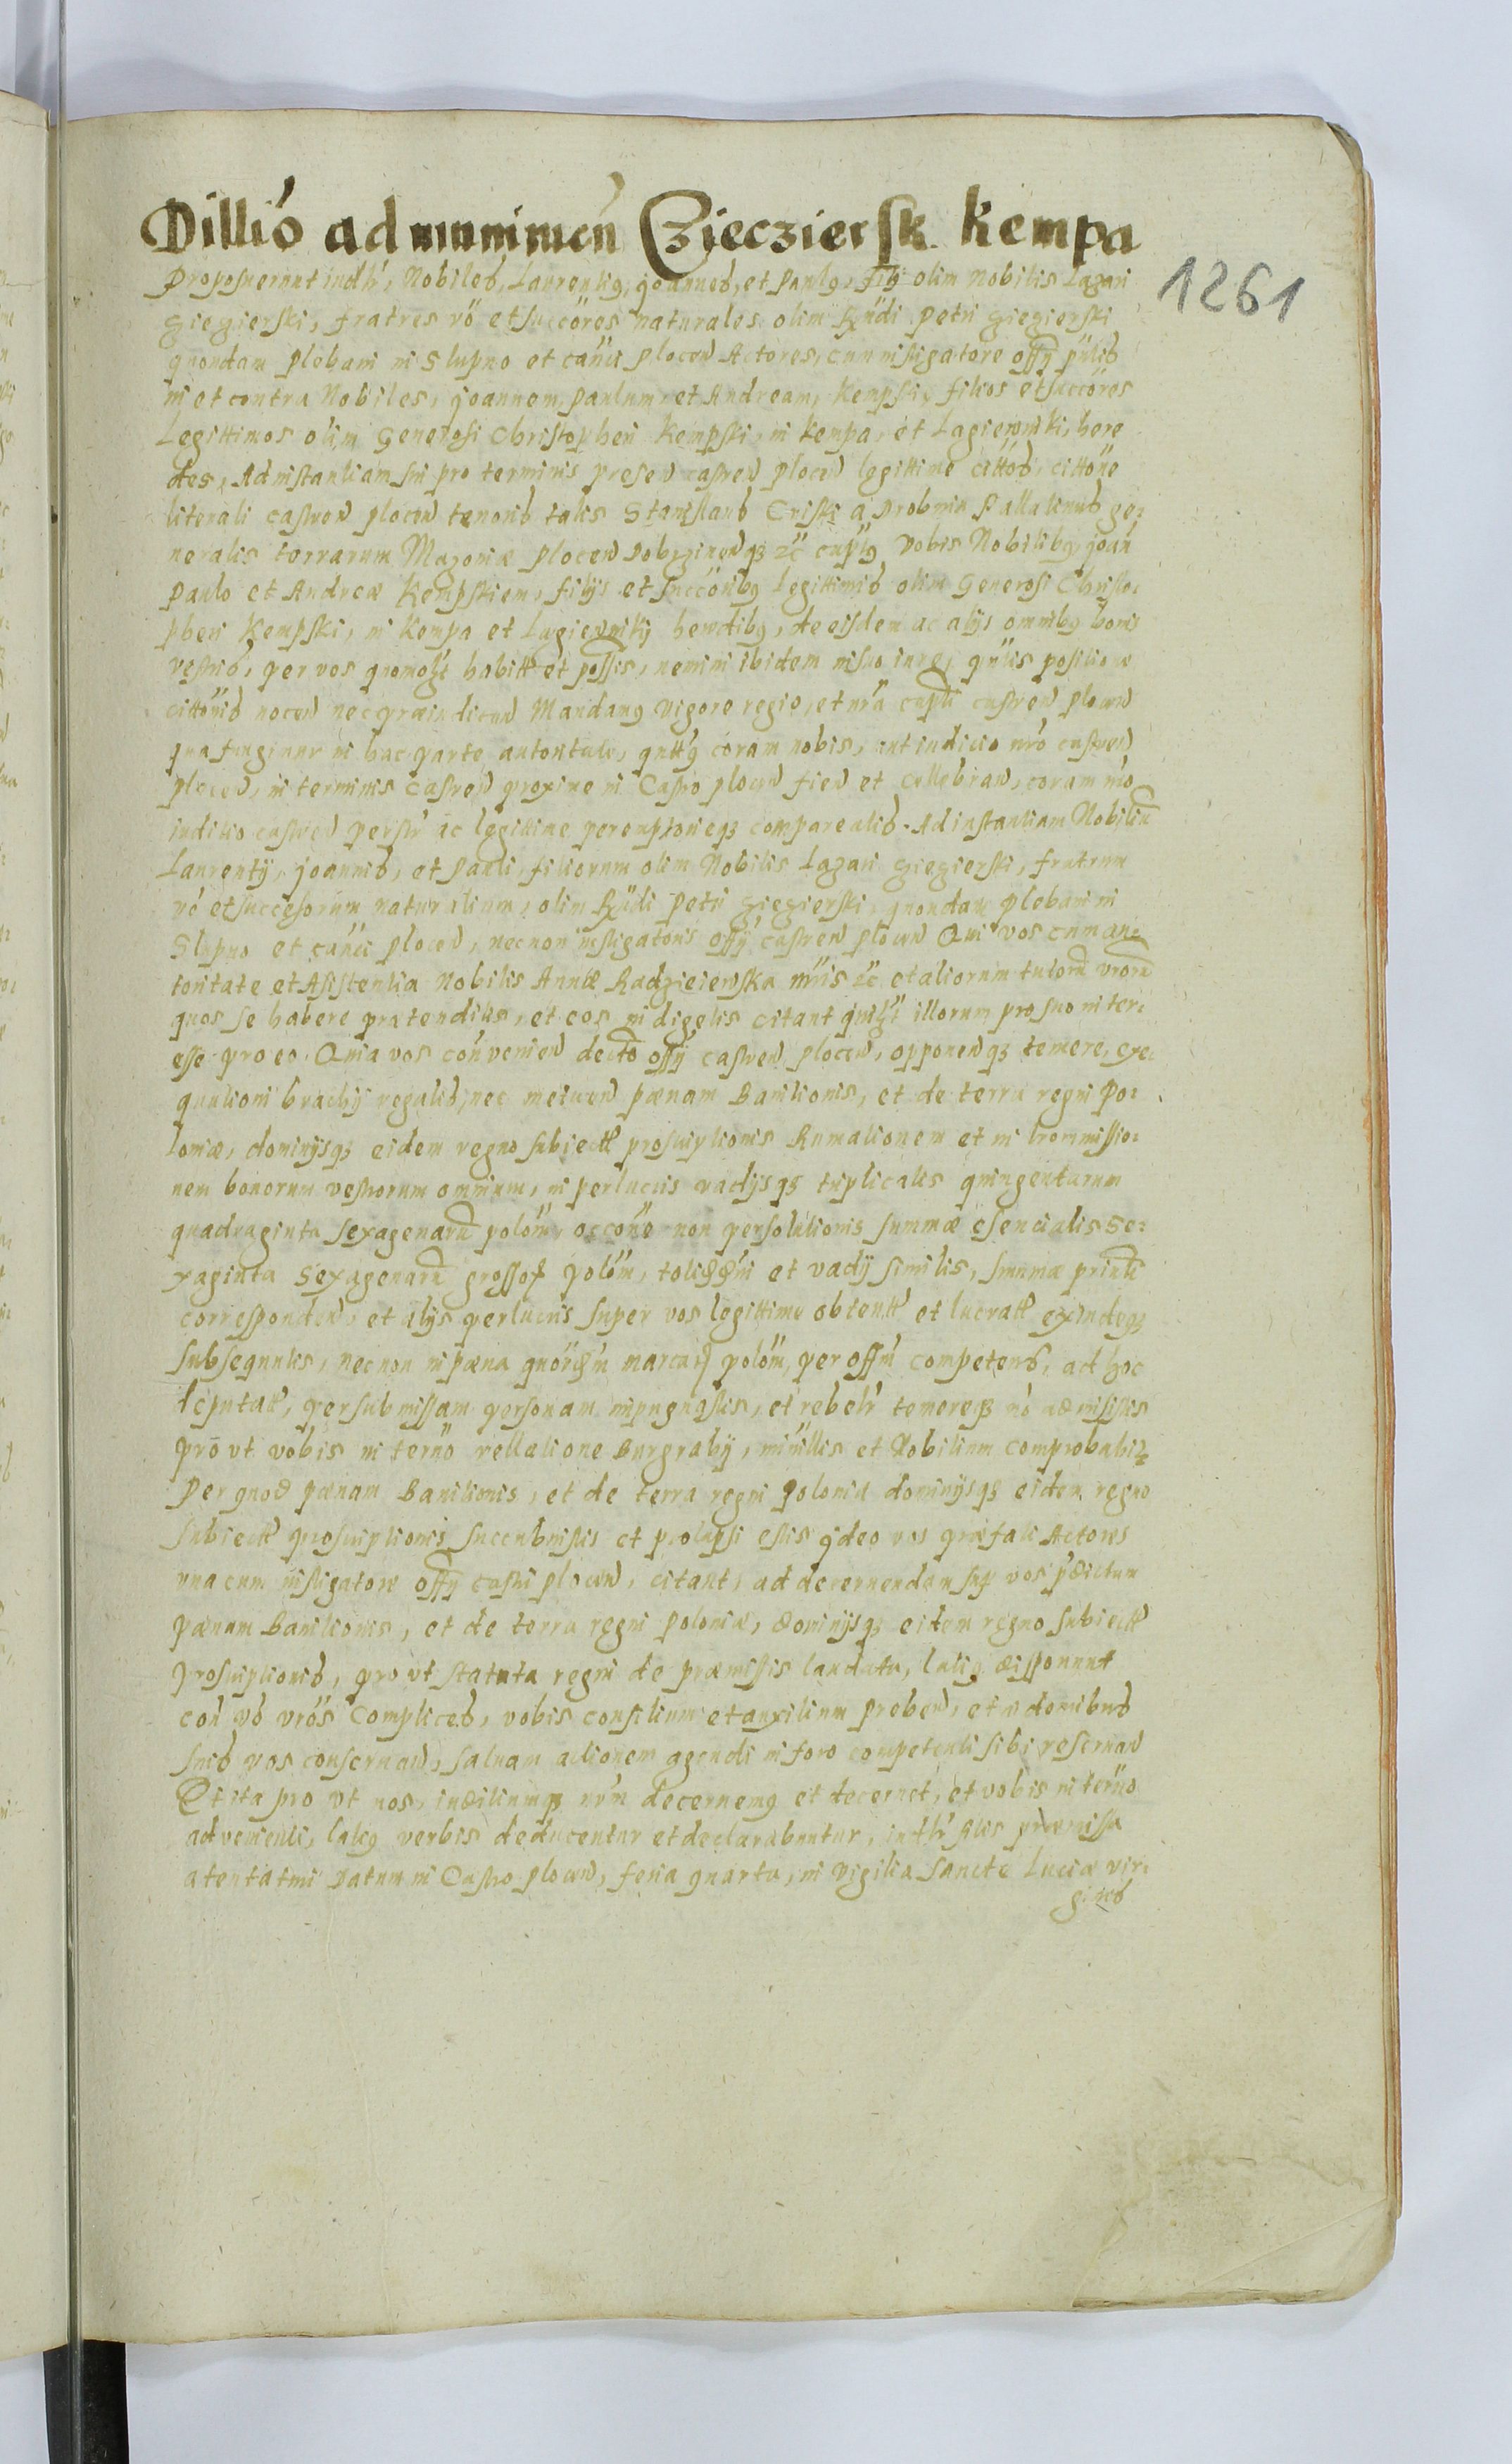 Dillió ad munimen Cziecziersk Kempa
1261
Proposuerunt iudlr, Nobiles, Laurentig, Joannes, et Paulg, filÿ olim Nobilis Lazari
Giegierski, fratres et succores naturales olim Rndi Petri Giegierski
quondam plebani in Slupno et canci plocen Actores, cum instigatore offÿ
in et contra Nobiles, Joannem, Paulum et Andream, Kempski, filios et succores
Legittimos olim Generosi Christopheri Kempski, in Kempa, et Lagiewniki, here
des, Ad instantiam sui pro terminis presen castren plocen legittime cittos, cittone
literali castren plocen tenoris talis Stanislaus Criski a Drobnin Pallatinus ge:
neralis terrarum Mazoniæ plocen Dobrzinenqz zc cuptg Vobis Nobilibg, Joan
Paulo et Andreæ Kempskiem, filÿs et succoribg legittimis olim Generosi Christo:
pheri Kempski, in Kempa et Lagiewniky heredibg, de eisdem ac alÿs omnibg bonis
vestris, per vos quomolzt habitt et possis, nemini ibidem in suo iure, qnlis positione
cittonis nocen nec præiudicen Mandamg vigore regio, et nra cupli castren plocen
qua fungimur in hac parte autoritate, qnttg coram nobis, aut iudicio nro castren
plocen, in terminis castren proxime in Castro plocen fien et cellebran, coram nro
iudicio castren perstr ac legittime peremptorieqz compareatis. Ad instantiam Nobiliu
Laurentÿ, Joannis, et Pauli, filiorum olim Nobilis Lazari Giegierski, fratrum
vo et succesorum naturalium, olim Rndi Petri Giegierski, quondam plebani in
Slupno et canci plocen, necnon instigatoris offÿ castren plocen Qui vos cum au:
toritate et Asistentia Nobilis Annæ Radzieiewska mris zc et aliorum tutoru vroru
quos se habere prætenditis, et eos in digelis citant quilzt illorum pro suo inter:
esse pro eo. Quia vos convenien decto offÿ castren plocen, opponenqz temere, exe
quutioni brachÿ regalis, nec metuen pænam Banitionis, et de terra regni Po:
loniæ, dominÿsqz eidem regno subiectt proscriptionis Rumationem et in tromissio:
nem bonorum vestrorum omnium, in perlucris vadÿsqz triplicatis quingentarum
quadraginta sexagenaru polom, occone non persolutionis summæ esencialis se:
xaginta sexagenaru grossor polom, totidem et vadÿ similis, summæ prinli
corresponden, et alÿs perlucris super vos legittime obtentt et lucratt exindeqz
subsequutis, necnon in pæna quorden marcar polom, per offm competens, ad hoc
deputatt, per submissam personam impugnastis, et rebellr temereqz no admisistis
pro vt vobis in terno rellatione Burgrabÿ, minillis et Nobilium comprobabir
Per quod pænam Banitionis, et de terra regni Poloniæ dominÿsqz eidem regno
subiectt proscriptionis succubuistis et prolapsi estis ideo vos præfati Actores
vna cum instigatore offÿ castri plocen, citant, ad decernendam sup vos pdictam
pænam Banitionis, et de terra regni Poloniæ, dominÿsqz eidem regno subiectt
proscriptionis, pro vt statuta regni de præmissis laudata, latig disponunt
con vo vros Complices, vobis consilium et auxilium preben, et in domibus
suis vos conseruan, saluam actionem agendi in foro competenti sibi reseruan
Et ita pro vt nos, iuditiumqz nrm decernemg et decernet, et vobis in terno
advenienti, latig verbis deducentur et declarabuntur, iudlr stis præmissa
atentatmi Datum in Castro plocen, feria quarta, in vigilia Sancte Luciæ vir:
ginis